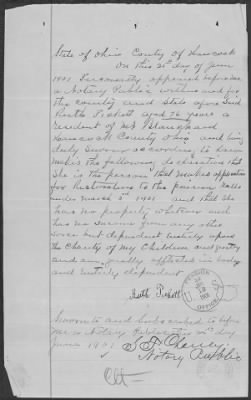 State of Ohio County of Hancock
On this 21st day of June
1901 Personally appeared before me
a Notary Public within and for
the County and State aforesaid
Ruth Pickett aged 76 years a
resident of Mt Blanchard
Hancock County Ohio and being
duly Sworn according to law
makes the following declaration that
She is the person that makes application
for restoration to the pension rolls
under March 3rd 1901 and that she
has no property whatever and
has no income from any other
source but dependent entirely upon
the Charity of my Children and
and am afflicted in body
and entirely dependent
Ruth Pickett
PENSION
OFFICE
Sworn to and subscribed to before
me a Notary Public this 21st day
June 1901
Notary Public